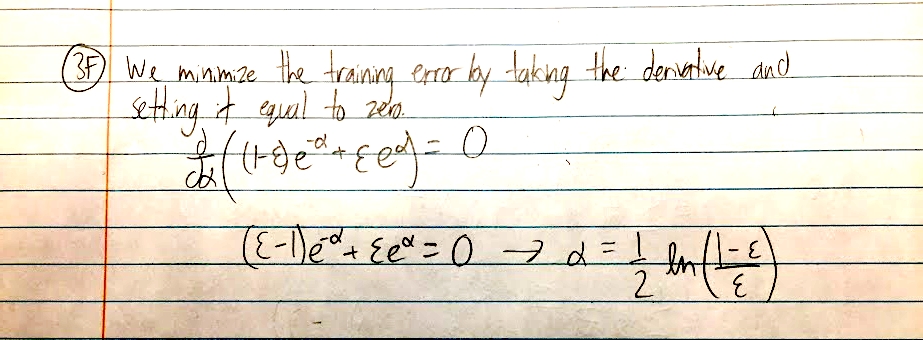 3F We minimize the training error by taking the derivative and
setting it equal to zero.
d/dα ((1-ε)e^-α + εe^α) = 0
(ε-1)e^-α + εe^α = 0 → α = 1/2 ln((1-ε)/ε)